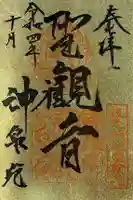 奉拝
聖観音
神泉苑
令和四年
十月